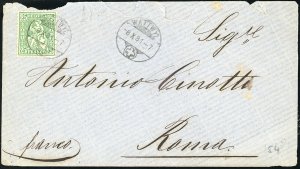 Sig.re
Antonio Cinotti
franco
Roma
54